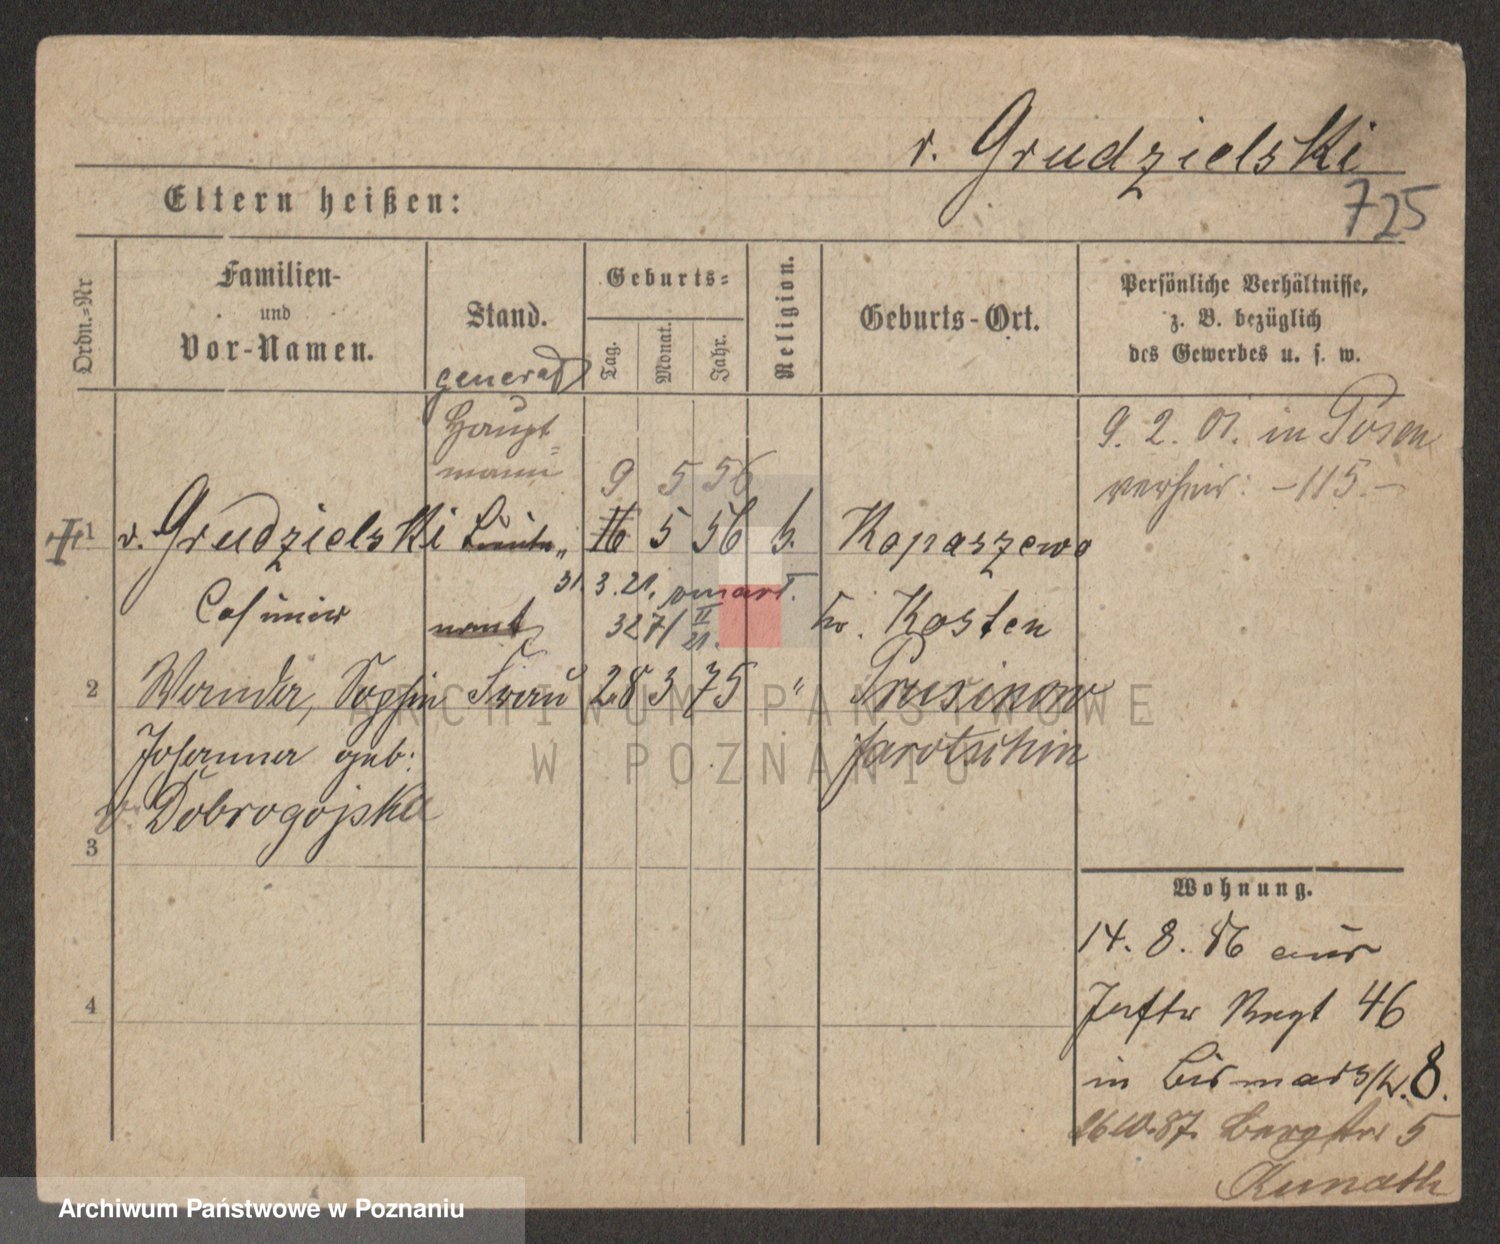 v. Grudzielski
725
Eltern heißen:
Ordn.-Nr
Familien-
und
Vor-Namen.
Stand.
Geburts-
Tag.
Monat.
Jahr.
Religion.
Geburts-Ort.
Persönliche Verhältnisse,
z. B. bezüglich
des Gewerbes u. s. w.
general
Haupt-
mann
9 5 56
9. 2. 01. in Posen
verheir: -115.-
1 v. Grudzielski Lieute„ 16 5 56 k. Kopaszewo
31. 3. 21.
Casimir nant 3271 II 21. Kr. Kosten
2 Wanda, Sophie Frau 28 3 75 " Prusinow
Johanna geb: Jarotschin
v. Dobrogojska
3
Wohnung.
14. 8. 86 aus
4
Inftr Regt 46
in Bismarckstr. 8.
26.10.87. Bergstr 5
Kunath
ARCHIWUM PAŃSTWOWE
W POZNANIU
Archiwum Państwowe w Poznaniu